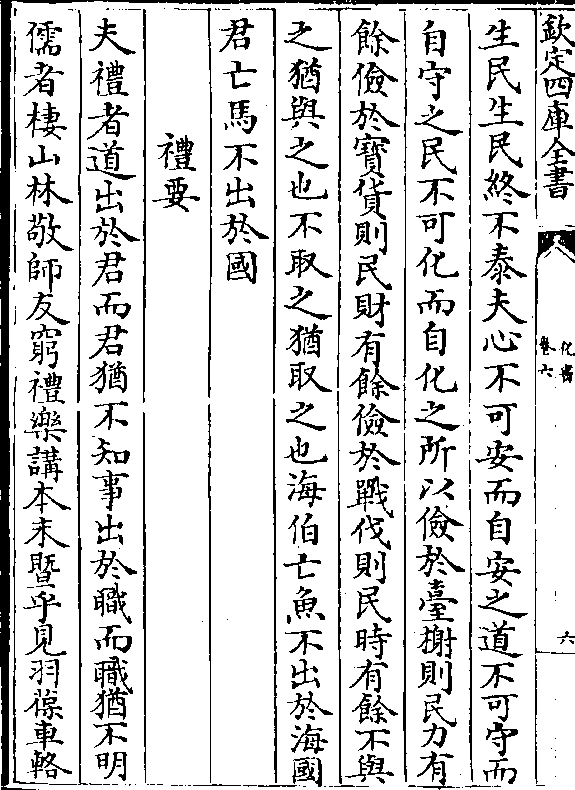 欽定四庫全書
化書
卷六
六
生民生民終不泰夫心不可安而自安之道不可守而
自守之民不可化而自化之所以儉於臺榭則民力有
餘儉於寶貨則民財有餘儉於戰伐則民時有餘不與
之猶與之也不取之猶取之也海伯亡魚不出於海國
君亡馬不出於國
禮要
夫禮者道出於君而君猶不知事出於職而職猶不明
儒者棲山林敬師友窮禮樂講本末暨乎見羽葆車輅